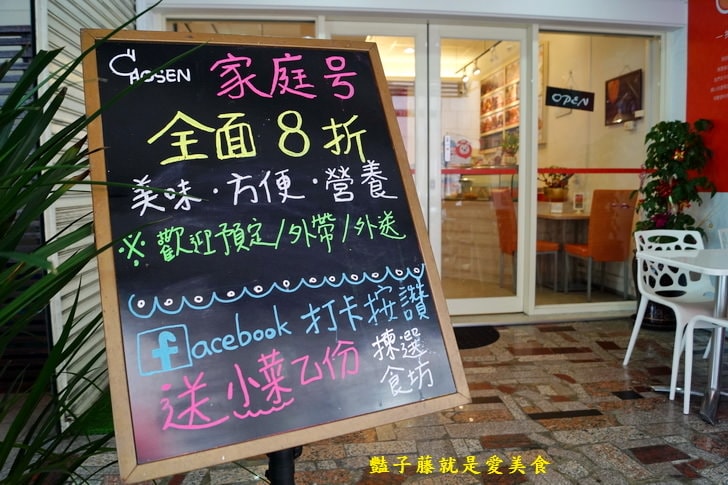 CHOSEN
家庭号
全面8折
美味·方便·營養
※歡迎預定/外帶/外送
facebook 打卡按讚
送小菜乙份
揀選
食坊
OPEN
豔子藤就是愛美食